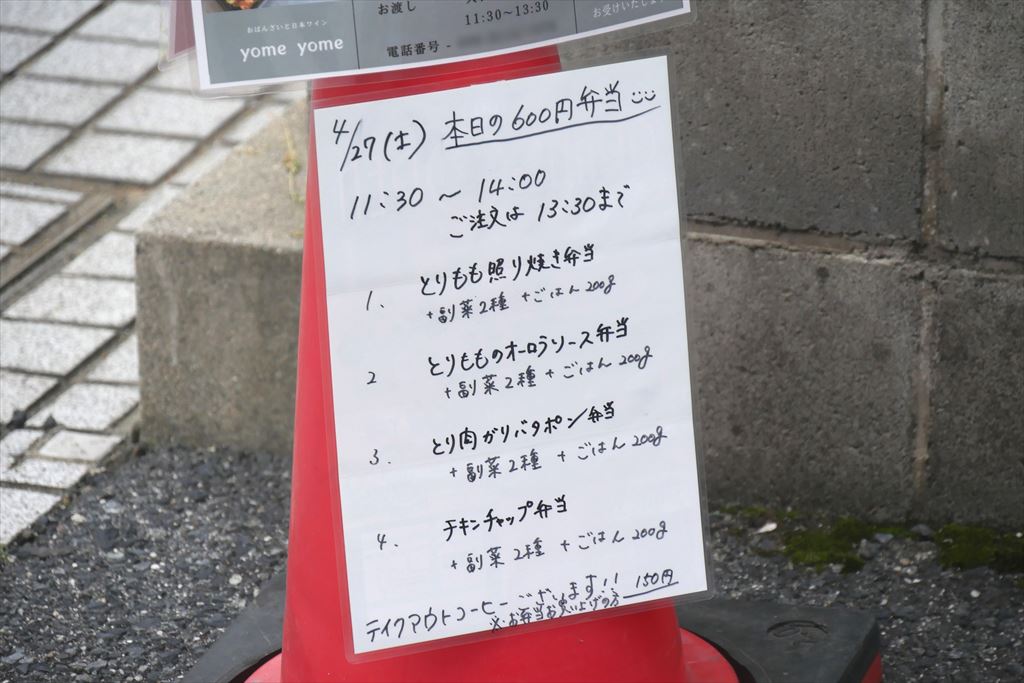 おばんざいと日本ワイン
yome yome
お渡し
11:30~13:30
お受けいたします
電話番号 -
4/27(土) 本日の600円弁当
11:30 ~ 14:00
ご注文は 13:30まで
1. とりもも照り焼き弁当
+副菜2種 +ごはん200g
2 とりもものオーロラソース弁当
+副菜2種 +ごはん200g
3. とり肉ガリバタポン弁当
+副菜2種 +ごはん200g
4. チキンチャップ弁当
+副菜2種 +ごはん200g
テイクアウトコーヒーございます!! 150円
※お弁当お買い上げの方